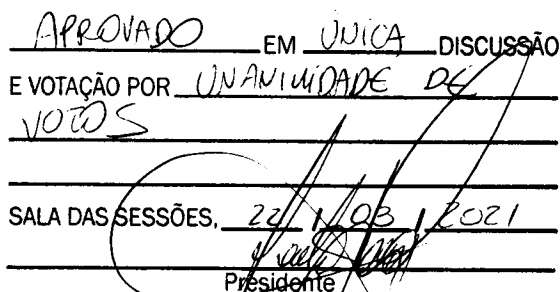 APROVADO EM ÚNICA DISCUSSÃO
E VOTAÇÃO POR UNANIMIDADE DE
VOTOS
SALA DAS SESSÕES, 22 / 03 / 2021
Presidente